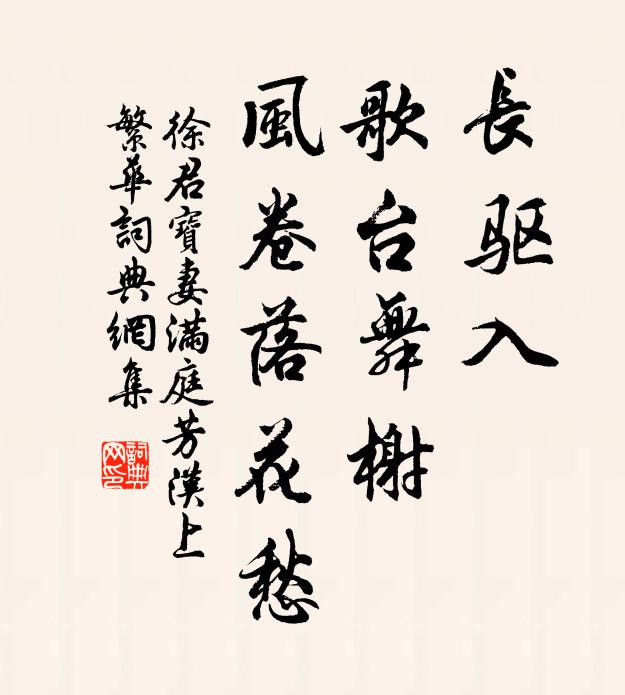 長驱入
歌台舞榭
風卷落花愁
徐君寶妻满庭芳漢上
繁華詞典網集
詞典
网印